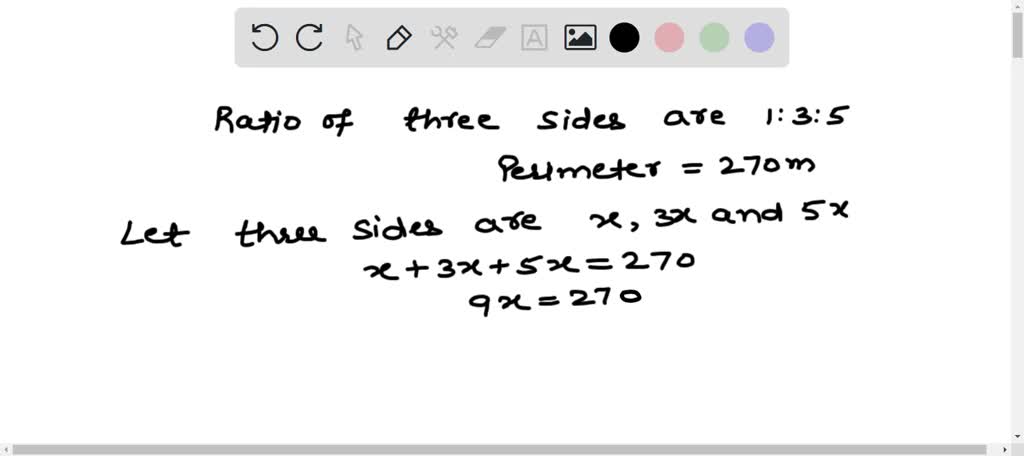 Ratio of three sides are 1:3:5
Perimeter = 270m
Let three sides are x, 3x and 5x
x+3x+5x=270
9x=270